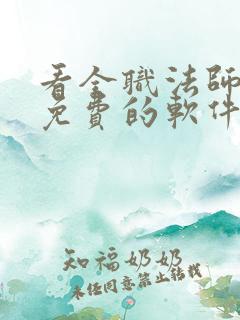 看全職法師
免費的軟件
知福奶奶
未经同意禁止转载